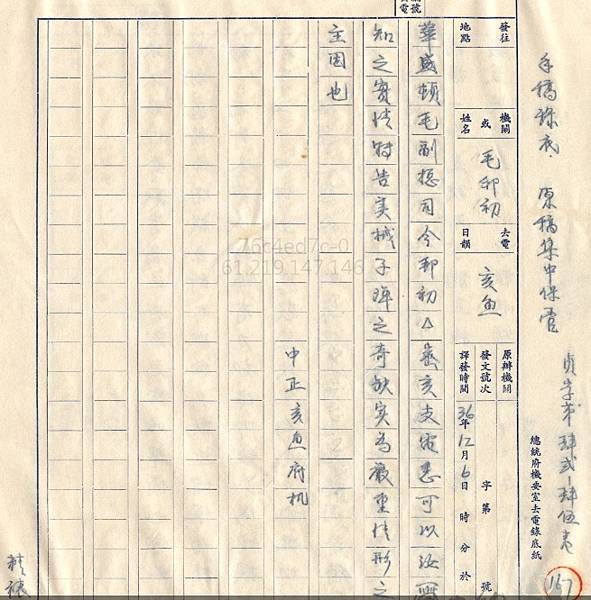 手稿錄底.原稿集中保管
貞字第肆貳-肆伍
總統府機要室去電錄底紙
167
發往地點
機關或姓名 毛邦初
去電日韻 亥魚
原辦機關
發文號次 字第 號
譯發時間 36年12月6日 時 分 於
華盛頓毛副總司令邦初△亥支電悉可以汝所
知之實情特告美械子彈之奇缺实為嚴重情形之
主因也
中正亥魚府机
76c4ed7c-0
61.219.147.146